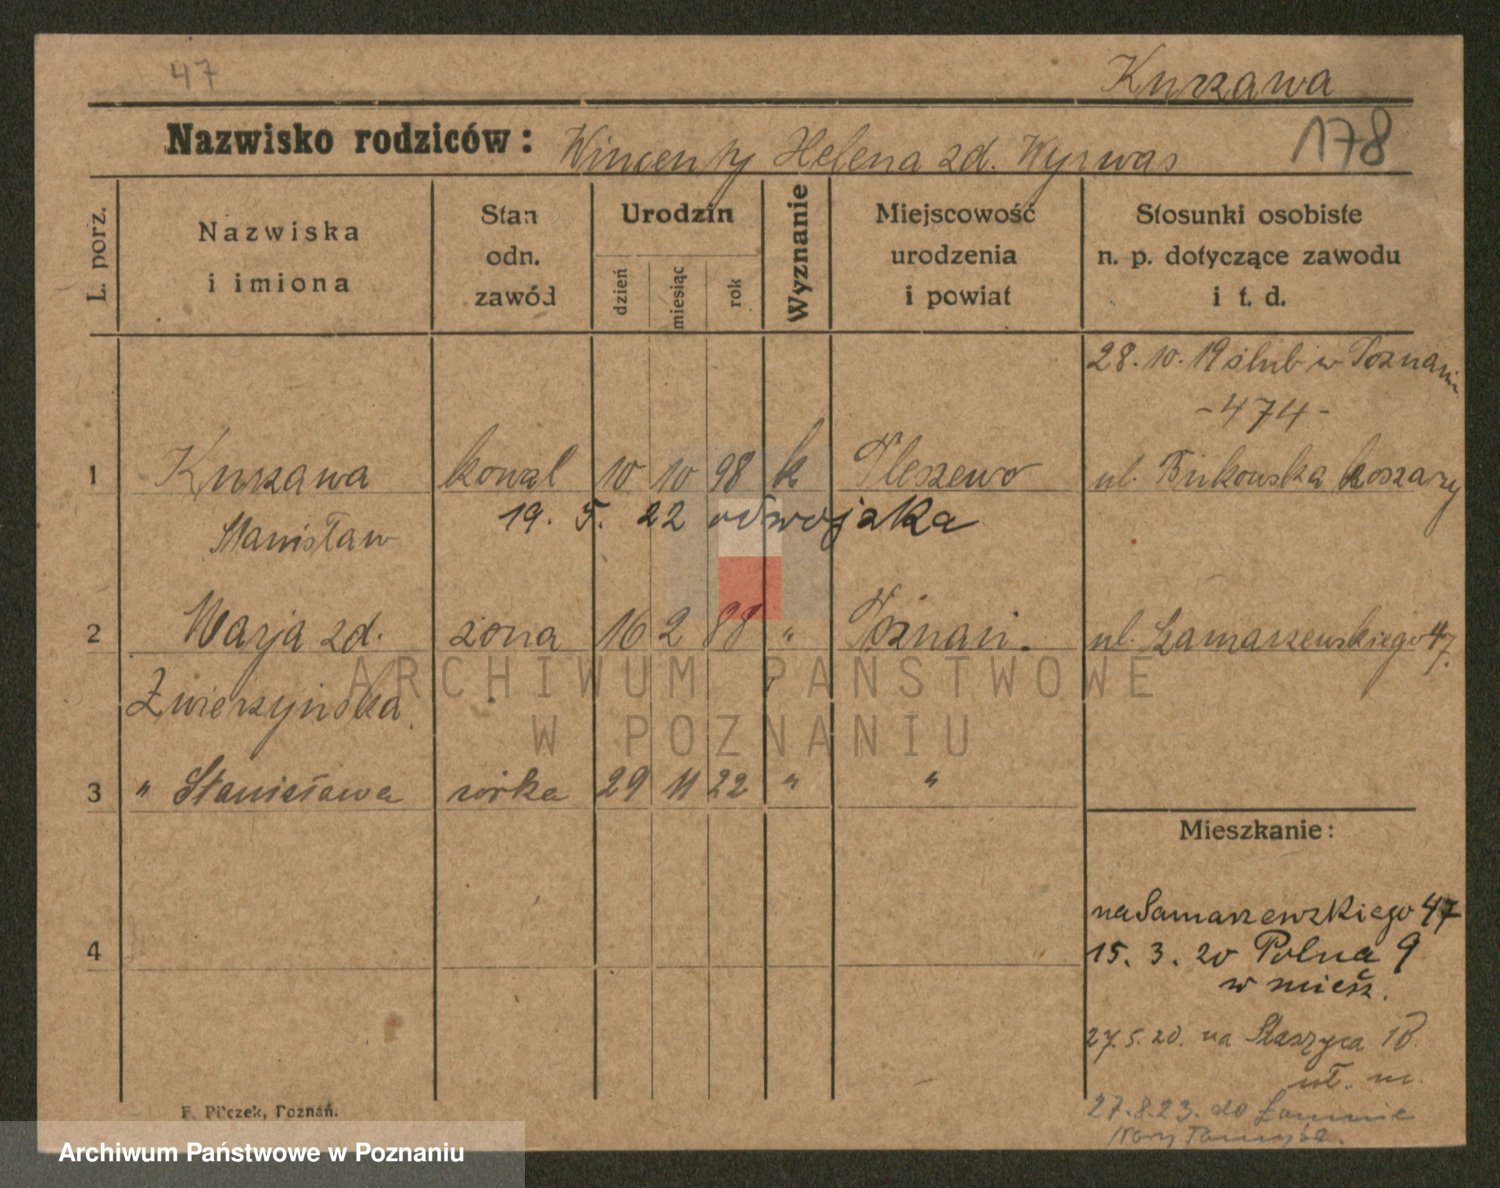 47
Kurzawa
Nazwisko rodziców: Wincenty Helena zd. Wyrwas
178
L. porz.
Nazwiska i imiona
Stan odn. zawód
Urodzin
dzień
miesiąc
rok
Wyznanie
Miejscowość urodzenia i powiat
Stosunki osobiste n. p. dotyczące zawodu i t. d.
28.10.19 ślub w Poznaniu
-474-
1 Kurzawa kowal 10 10 98 k Pleszewo ul. Bukowska koszary
Stanisław
19. 5. 22 od wojska
2 Marja zd. żona 16 2 98 " Poznań. ul. Szamarzewskiego 47.
Zwierzyńska
3 " Stanisława córka 29 11 22 " "
Mieszkanie:
na Samarzewskiego 47
4
15. 3. 20 Polna 9
w miesz.
27.5.20. na Staszyca 18.
wł. m.
27.8.23. do
Nowy
F. Pilczek, Poznań.
ARCHIWUM PAŃSTWOWE
W POZNANIU
Archiwum Państwowe w Poznaniu